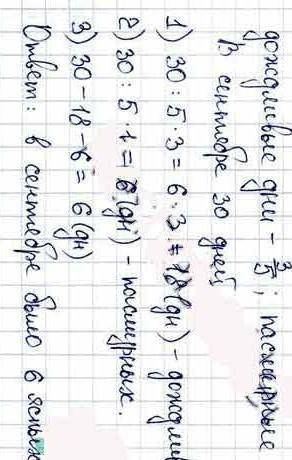 дождливые дни - 3/5; пасмурные
В сентябре 30 дней
1) 30 : 5 · 3 = 6 · 3 = 18 (дн) - дождли
2) 30 : 5 · 1 = 6 (дн) - пасмурных.
3) 30 - 18 - 6 = 6 (дн)
Ответ: в сентябре было 6 ясных